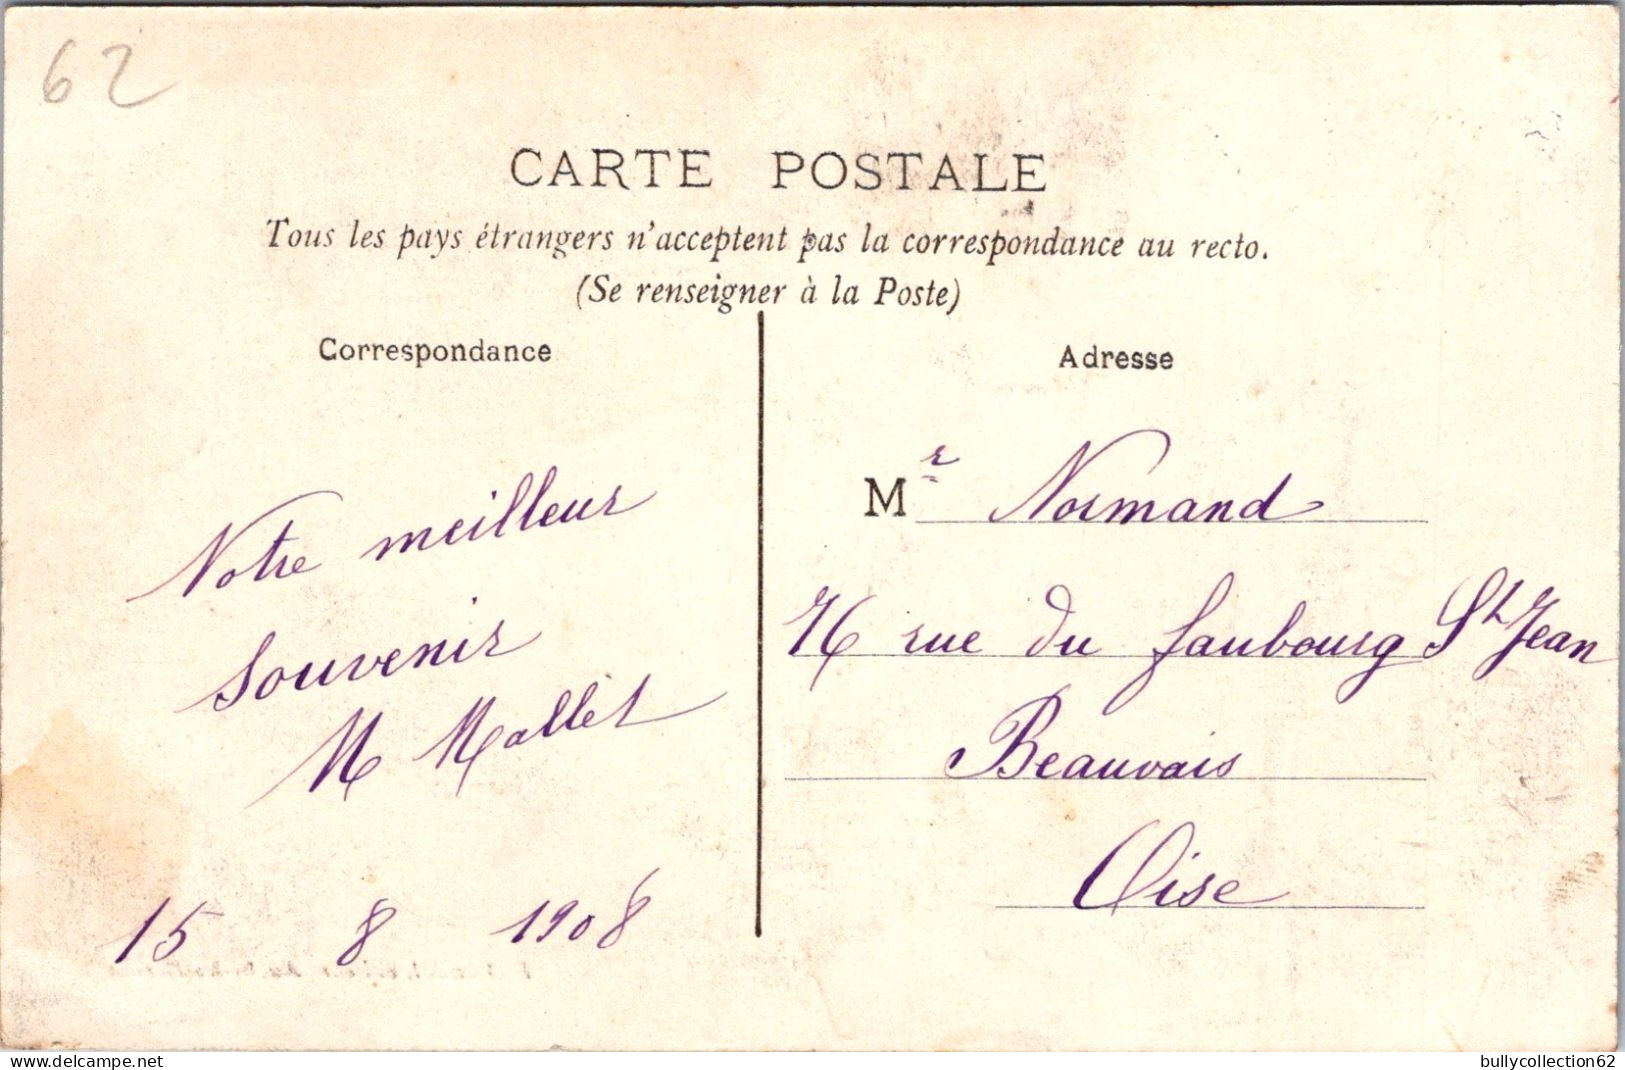 62
CARTE POSTALE
Tous les pays étrangers n'acceptent pas la correspondance au recto.
(Se renseigner à la Poste)
Correspondance
Notre meilleur
souvenir
M Mallet
15 8 1908
Adresse
Mr Normand
76 rue du faubourg St Jean
Beauvais
Oise
delcampe.net
bullycollection62